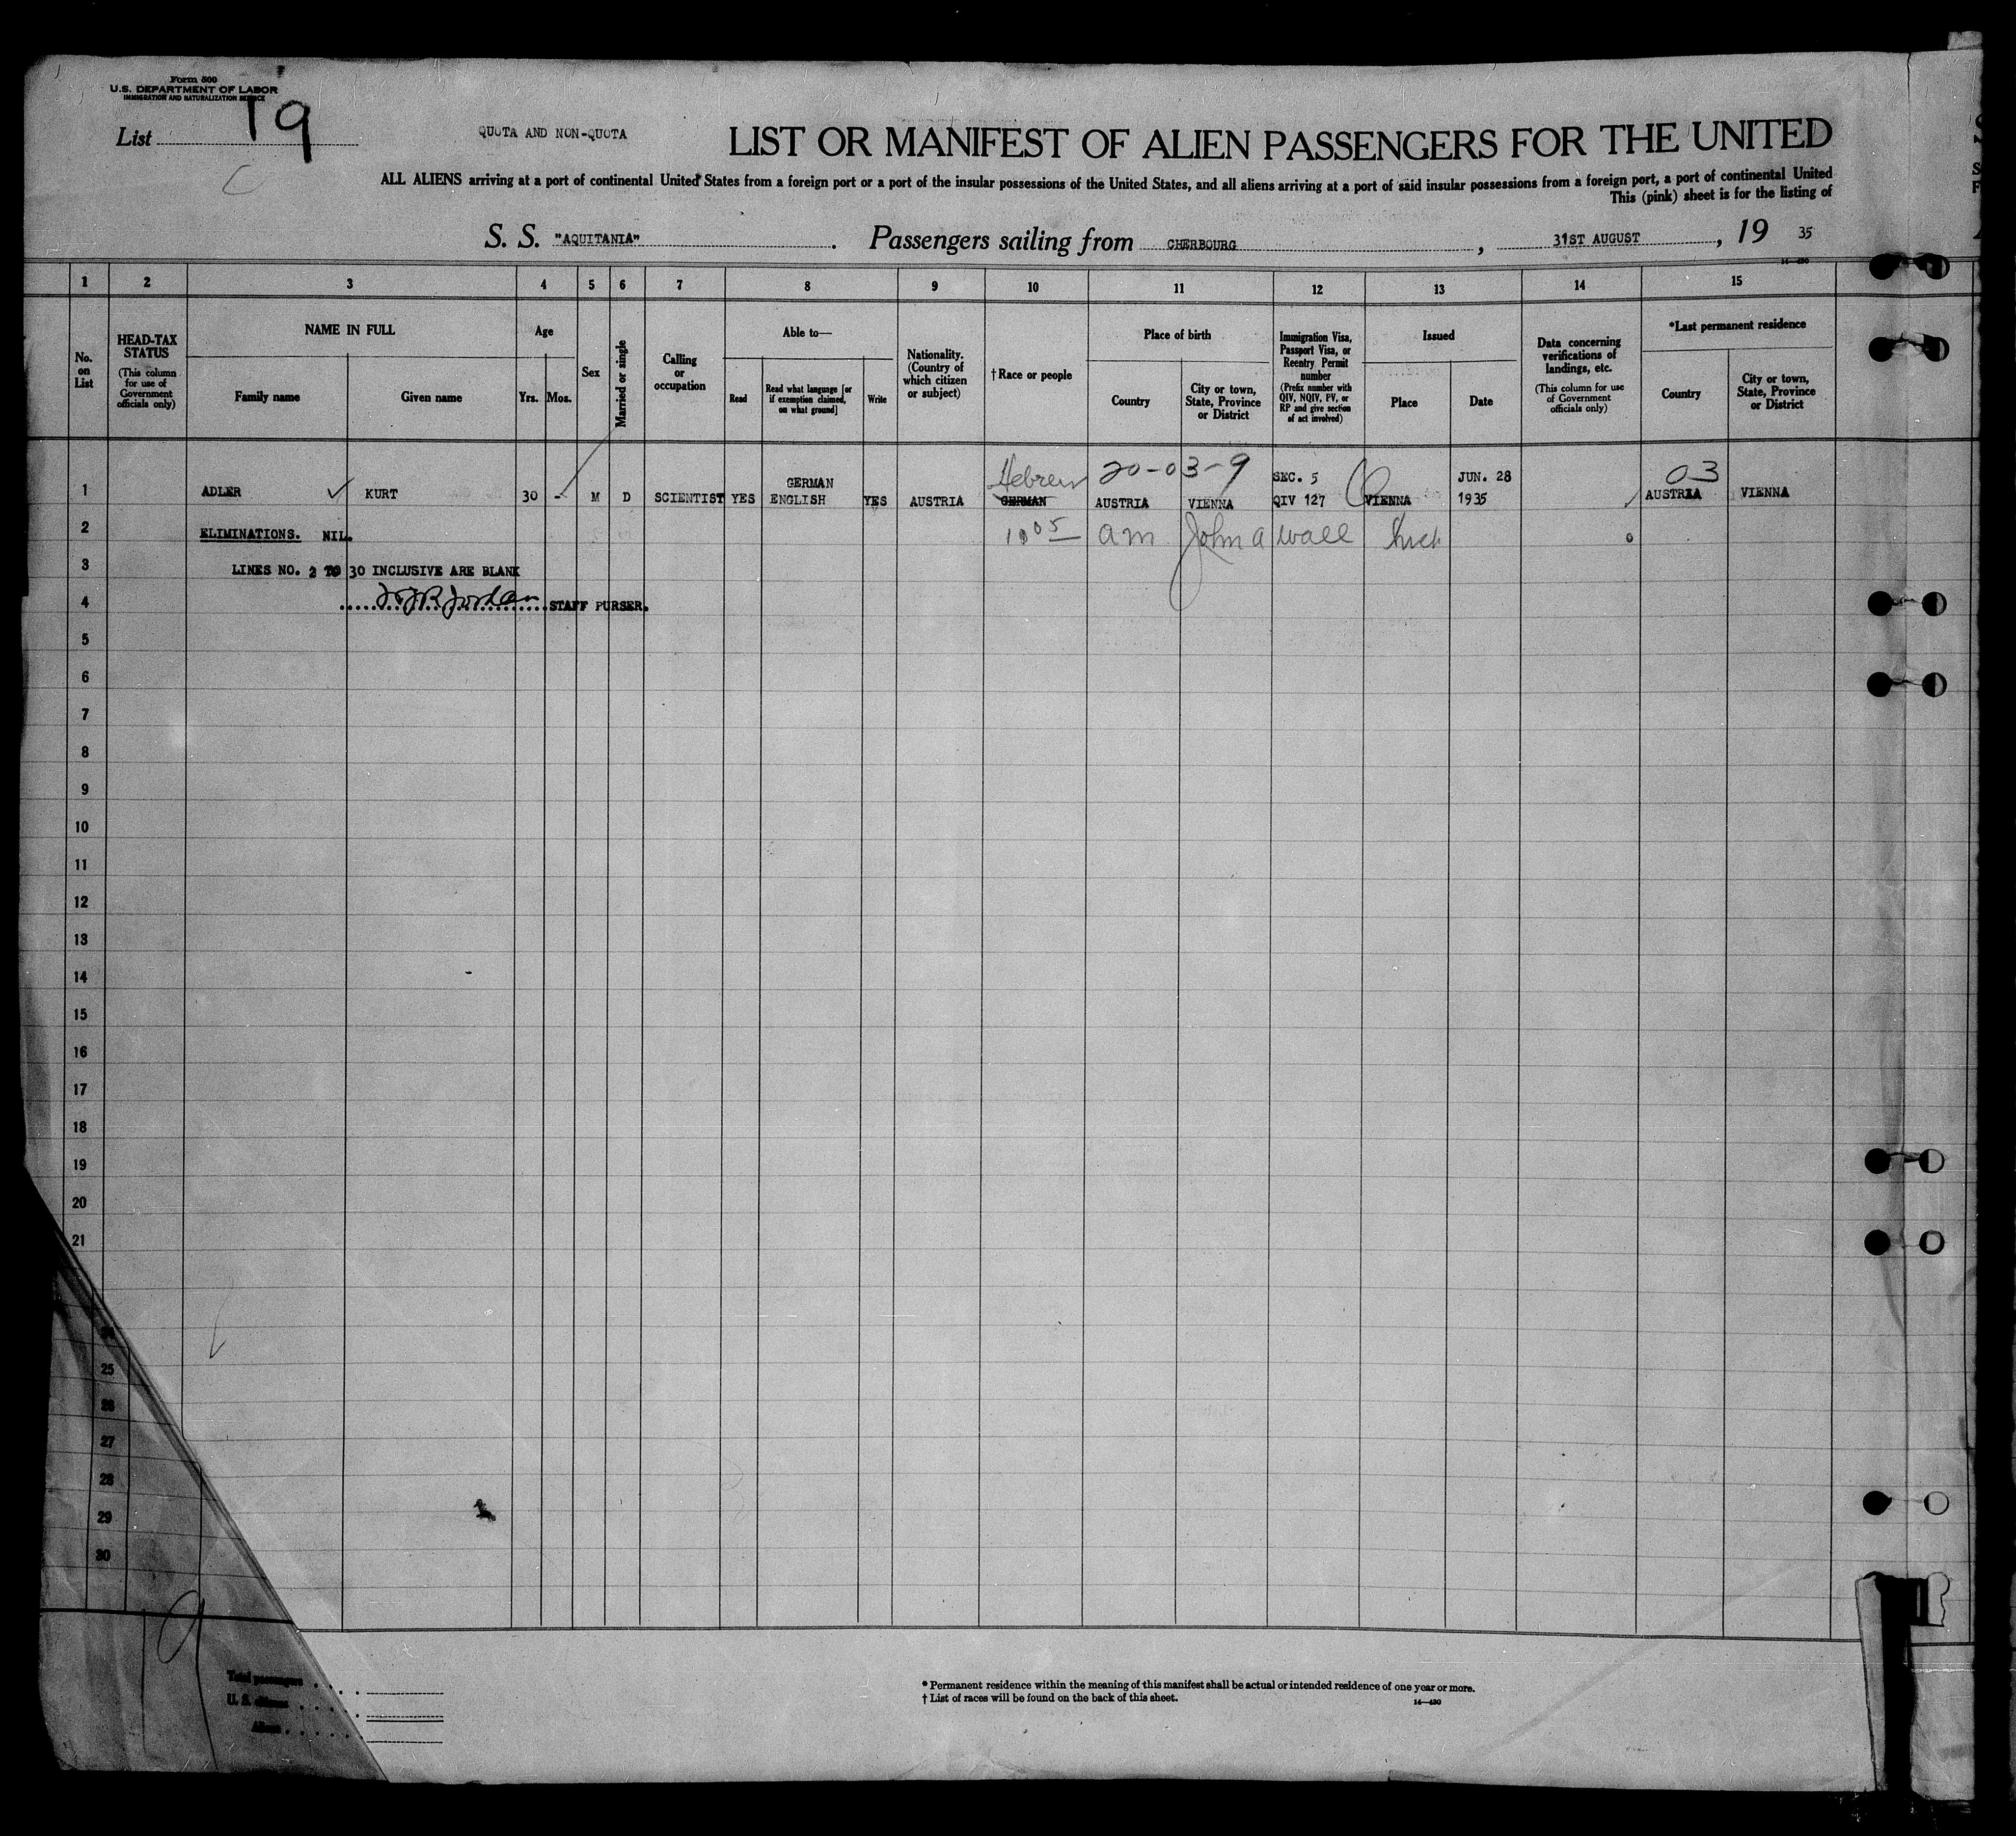 Form 500
U.S. DEPARTMENT OF LABOR
IMMIGRATION AND NATURALIZATION SERVICE
List 19
QUOTA AND NON-QUOTA
LIST OR MANIFEST OF ALIEN PASSENGERS FOR THE UNITED
ALL ALIENS arriving at a port of continental United States from a foreign port or a port of the insular possessions of the United States, and all aliens arriving at a port of said insular possessions from a foreign port, a port of continental United
This (pink) sheet is for the listing of
S. S. "AQUITANIA". Passengers sailing from CHERBOURG, 31ST AUGUST, 19 35
14—430
1 2 3 4 5 6 7 8 9 10 11 12 13 14 15
No. on List
HEAD-TAX STATUS (This column for use of Government officials only)
NAME IN FULL
Family name
Given name
Age
Yrs. Mos.
Sex
Married or single
Calling or occupation
Able to—
Read
Read what language [or if exemption claimed, on what ground]
Write
Nationality. (Country of which citizen or subject)
†Race or people
Place of birth
Country
City or town, State, Province or District
Immigration Visa, Passport Visa, or Reentry Permit number (Prefix number with QIV, NQIV, PV, or RP and give section of act involved)
Issued
Place
Date
Data concerning verifications of landings, etc. (This column for use of Government officials only)
*Last permanent residence
Country
City or town, State, Province or District
Hebrew 20-03-9 SEC. 5 JUN. 28 03
GERMAN
1 ADLER KURT 30 - M D SCIENTIST YES ENGLISH YES AUSTRIA GERMAN AUSTRIA VIENNA QIV 127 VIENNA 1935 AUSTRIA VIENNA
2 ELIMINATIONS. NIL. 10 05 am John A Wall
3 LINES NO. 2 TO 30 INCLUSIVE ARE BLANK
4 Jordan STAFF PURSER.
5
6
7
8
9
10
11
12
13
14
15
16
17
18
19
20
21
24
25
26
27
28
29
30
19
Total passengers
U. S. citizens
Aliens
* Permanent residence within the meaning of this manifest shall be actual or intended residence of one year or more.
† List of races will be found on the back of this sheet.
14—430